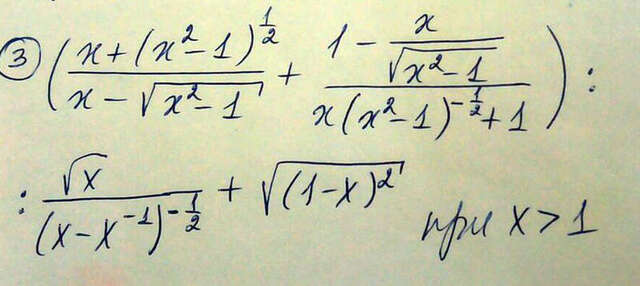 ③ ( (x+(x²-1)^(1/2))/(x-√(x²-1)) + (1 - x/√(x²-1))/(x(x²-1)^(-1/2)+1) ) :
: √x/(x-x^(-1))^(-1/2) + √((1-x)²) при x>1